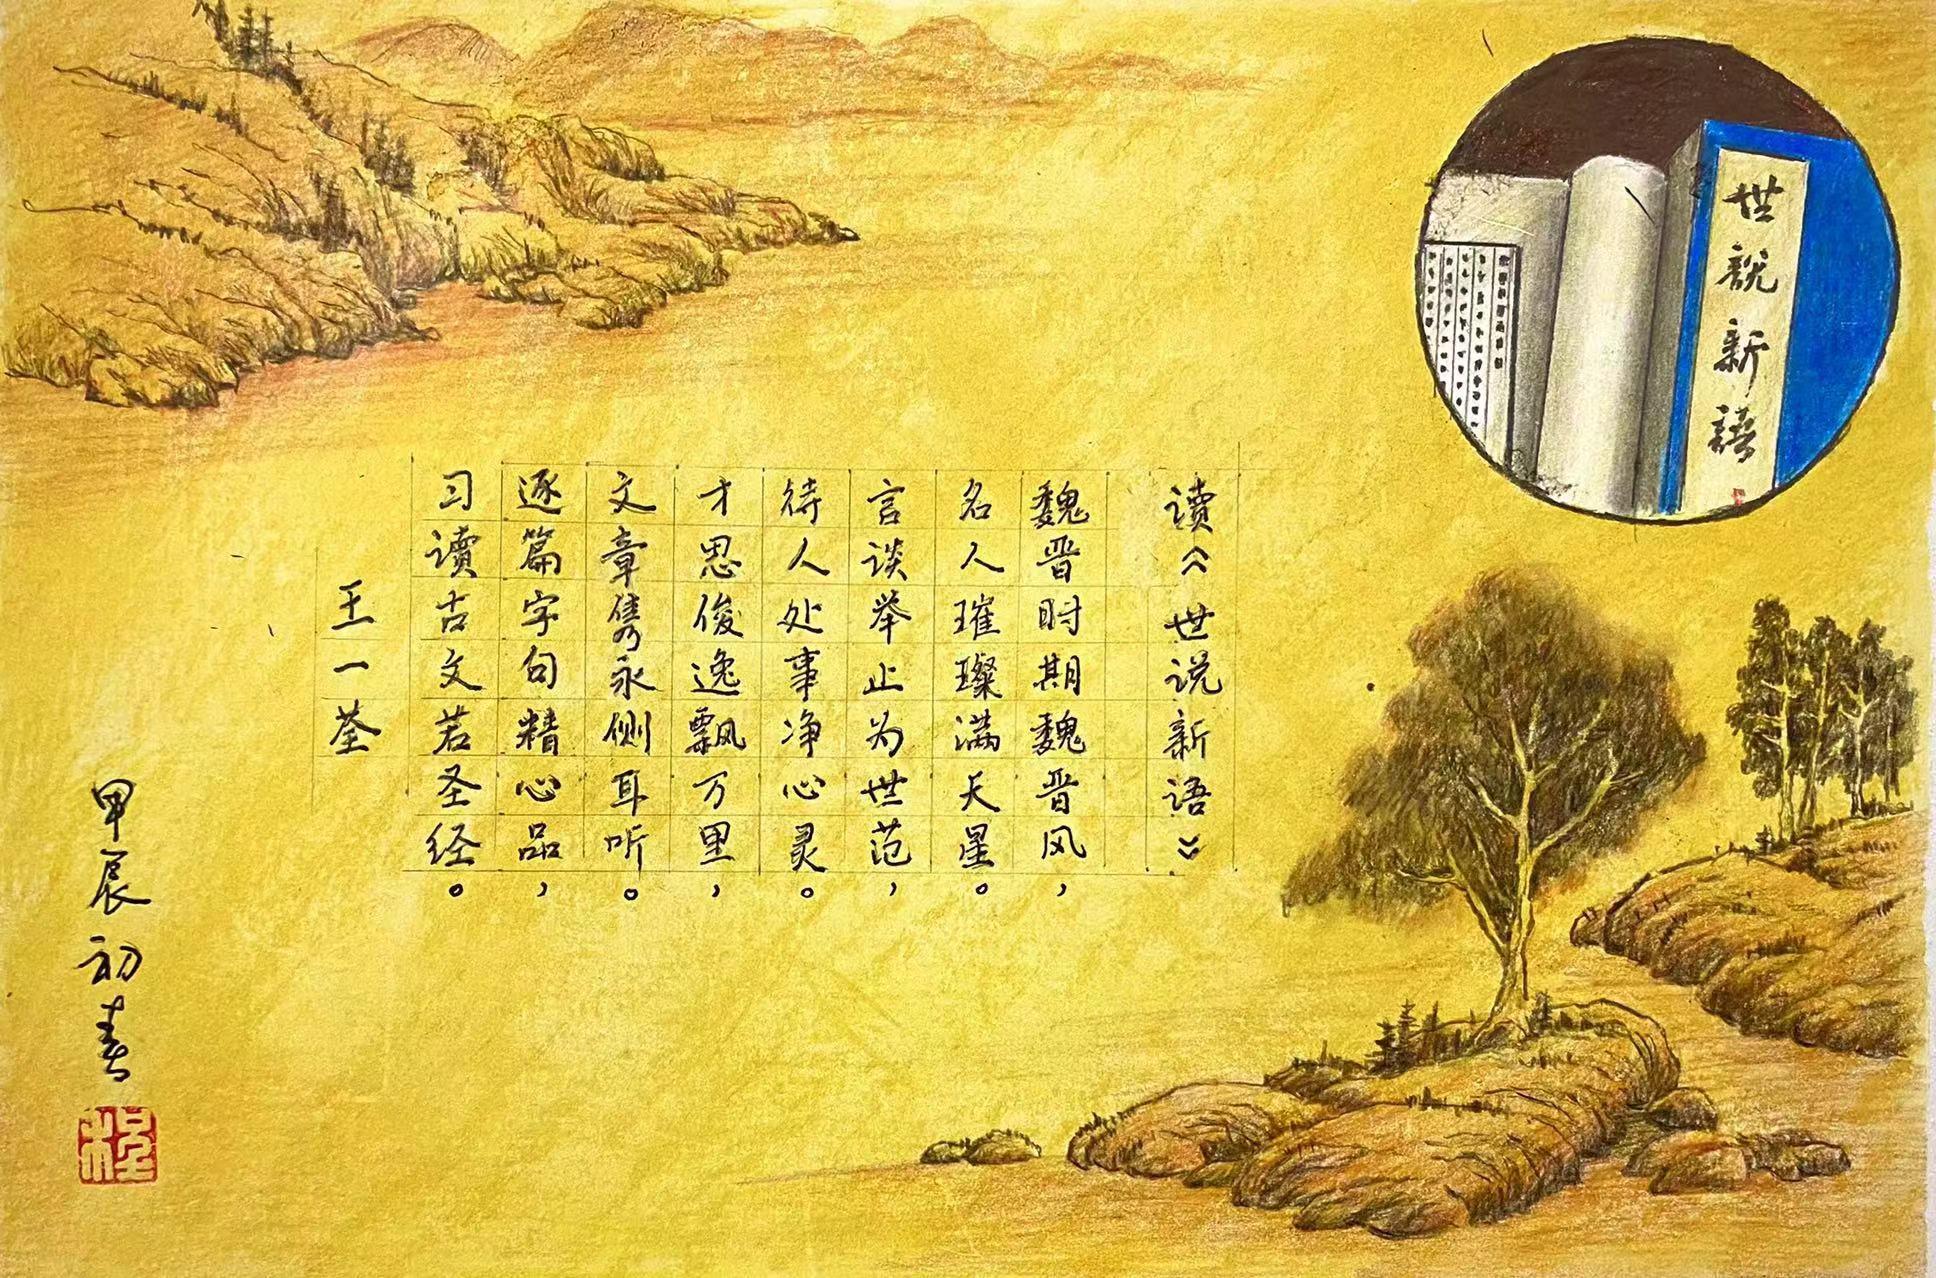 世説新語
读《世说新语》
魏晋时期魏晋风，
名人璀璨满天星。
言谈举止为世范，
待人处事净心灵。
才思俊逸飘万里，
文章隽永侧耳听。
逐篇字句精心品，
习读古文若圣经。
王一荃
甲辰初春